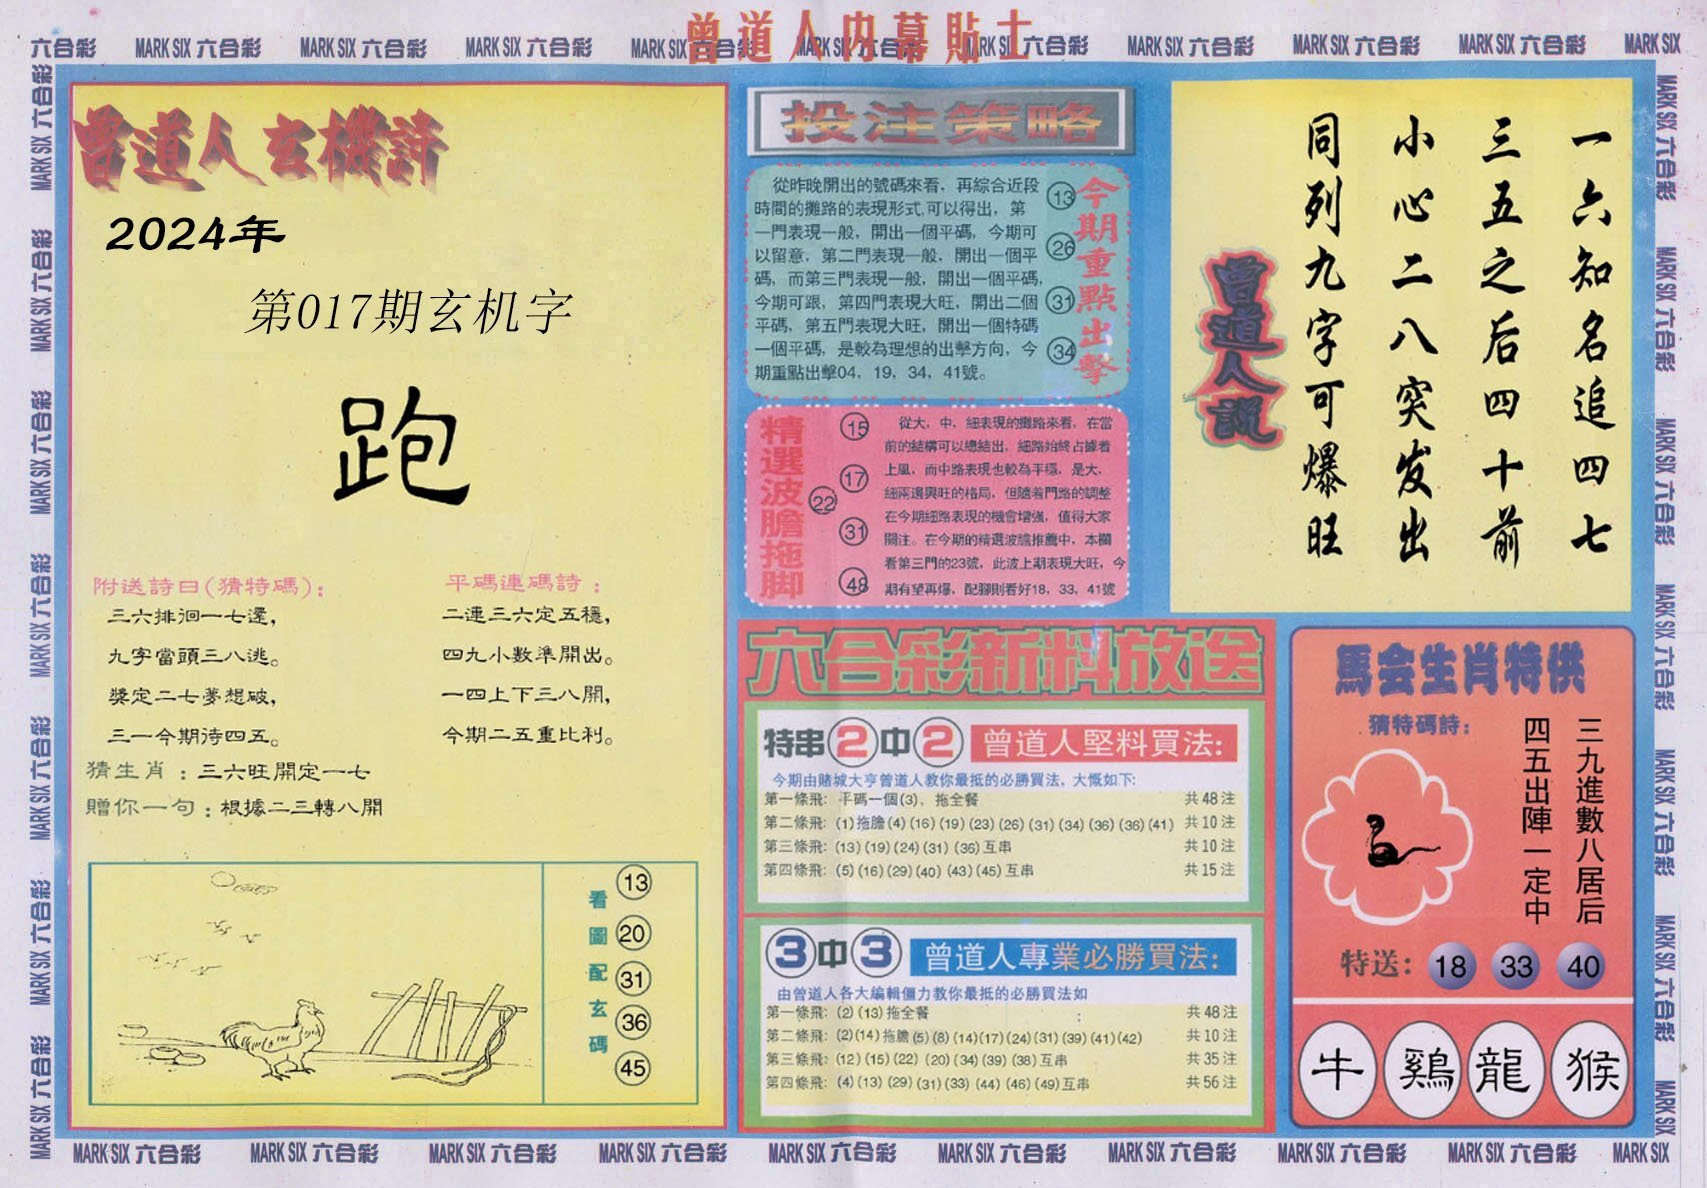 曾道人内幕貼士
六合彩 MARK SIX 六合彩 MARK SIX 六合彩 MARK SIX 六合彩 MARK SIX 六合彩 MARK SIX 六合彩 MARK SIX 六合彩 MARK SIX 六合彩 MARK SIX 六合彩 MARK SIX
曾道人玄機詩
2024年
第017期玄机字
跑
附送詩曰(猜特碼):
三六排徊一七還,
九字當頭三八逃。
獎定二七夢想破,
三一今期待四五。
平碼連碼詩:
二連三六定五穩,
四九小數準開出。
一四上下三八開,
今期二五重比利。
猜生肖:三六旺開定一七
贈你一句:根據二三轉八開
看圖配玄碼
13
20
31
36
45
投注策略
從昨晚開出的號碼來看，再綜合近段
時間的攤路的表現形式,可以得出，第
一門表現一般，開出一個平碼，今期可
以留意，第二門表現一般，開出一個平
碼，而第三門表現一般，開出一個平碼，
今期可跟，第四門表現大旺，開出二個
平碼，第五門表現大旺，開出一個特碼
一個平碼，是較為理想的出擊方向，今
期重點出擊04，19，34，41號。
13
26
31
34
今期重點出擊
精選波膽拖脚
15
17
22
31
48
從大，中，細表現的攤路來看，在當
前的結構可以總結出，細路始終占據着
上風，而中路表現也較為平穩，是大，
細兩邊興旺的格局，但隨着門路的調整
在今期細路表現的機會增強，值得大家
關注。在今期的精選波膽推薦中，本欄
看第三門的23號，此波上期表現大旺，今
期有望再爆，配腳則看好18，33，41號
一六知名追四七
三五之后四十前
小心二八突发出
同列九字可爆旺
曾道人説
六合彩新料放送
特串2中2 曾道人堅料買法:
今期由賭城大亨曾道人教你最抵的必勝買法，大慨如下:
第一條飛: 平碼一個(3)，拖全餐 共48注
第二條飛: (1)拖膽(4)(16)(19)(23)(26)(31)(34)(36)(36)(41) 共10注
第三條飛: (13)(19)(24)(31)(36)互串 共10注
第四條飛: (5)(16)(29)(40)(43)(45)互串 共15注
3中3 曾道人專業必勝買法:
由曾道人各大編輯僵力教你最抵的必勝買法如
第一條飛: (2)(13)拖全餐 共48注
第二條飛: (2)(14)拖膽(5)(8)(14)(17)(24)(31)(39)(41)(42) 共10注
第三條飛: (12)(15)(22)(20)(34)(39)(38)互串 共35注
第四條飛: (4)(13)(29)(31)(33)(44)(46)(49)互串 共56注
馬会生肖特供
猜特碼詩:
三九進數八居后
四五出陣一定中
特送: 18 33 40
牛 鷄 龍 猴
MARK SIX 六合彩 MARK SIX 六合彩 MARK SIX 六合彩 MARK SIX 六合彩 MARK SIX 六合彩 MARK SIX 六合彩 MARK SIX 六合彩 MARK SIX 六合彩 MARK SIX 六合彩 MARK SIX